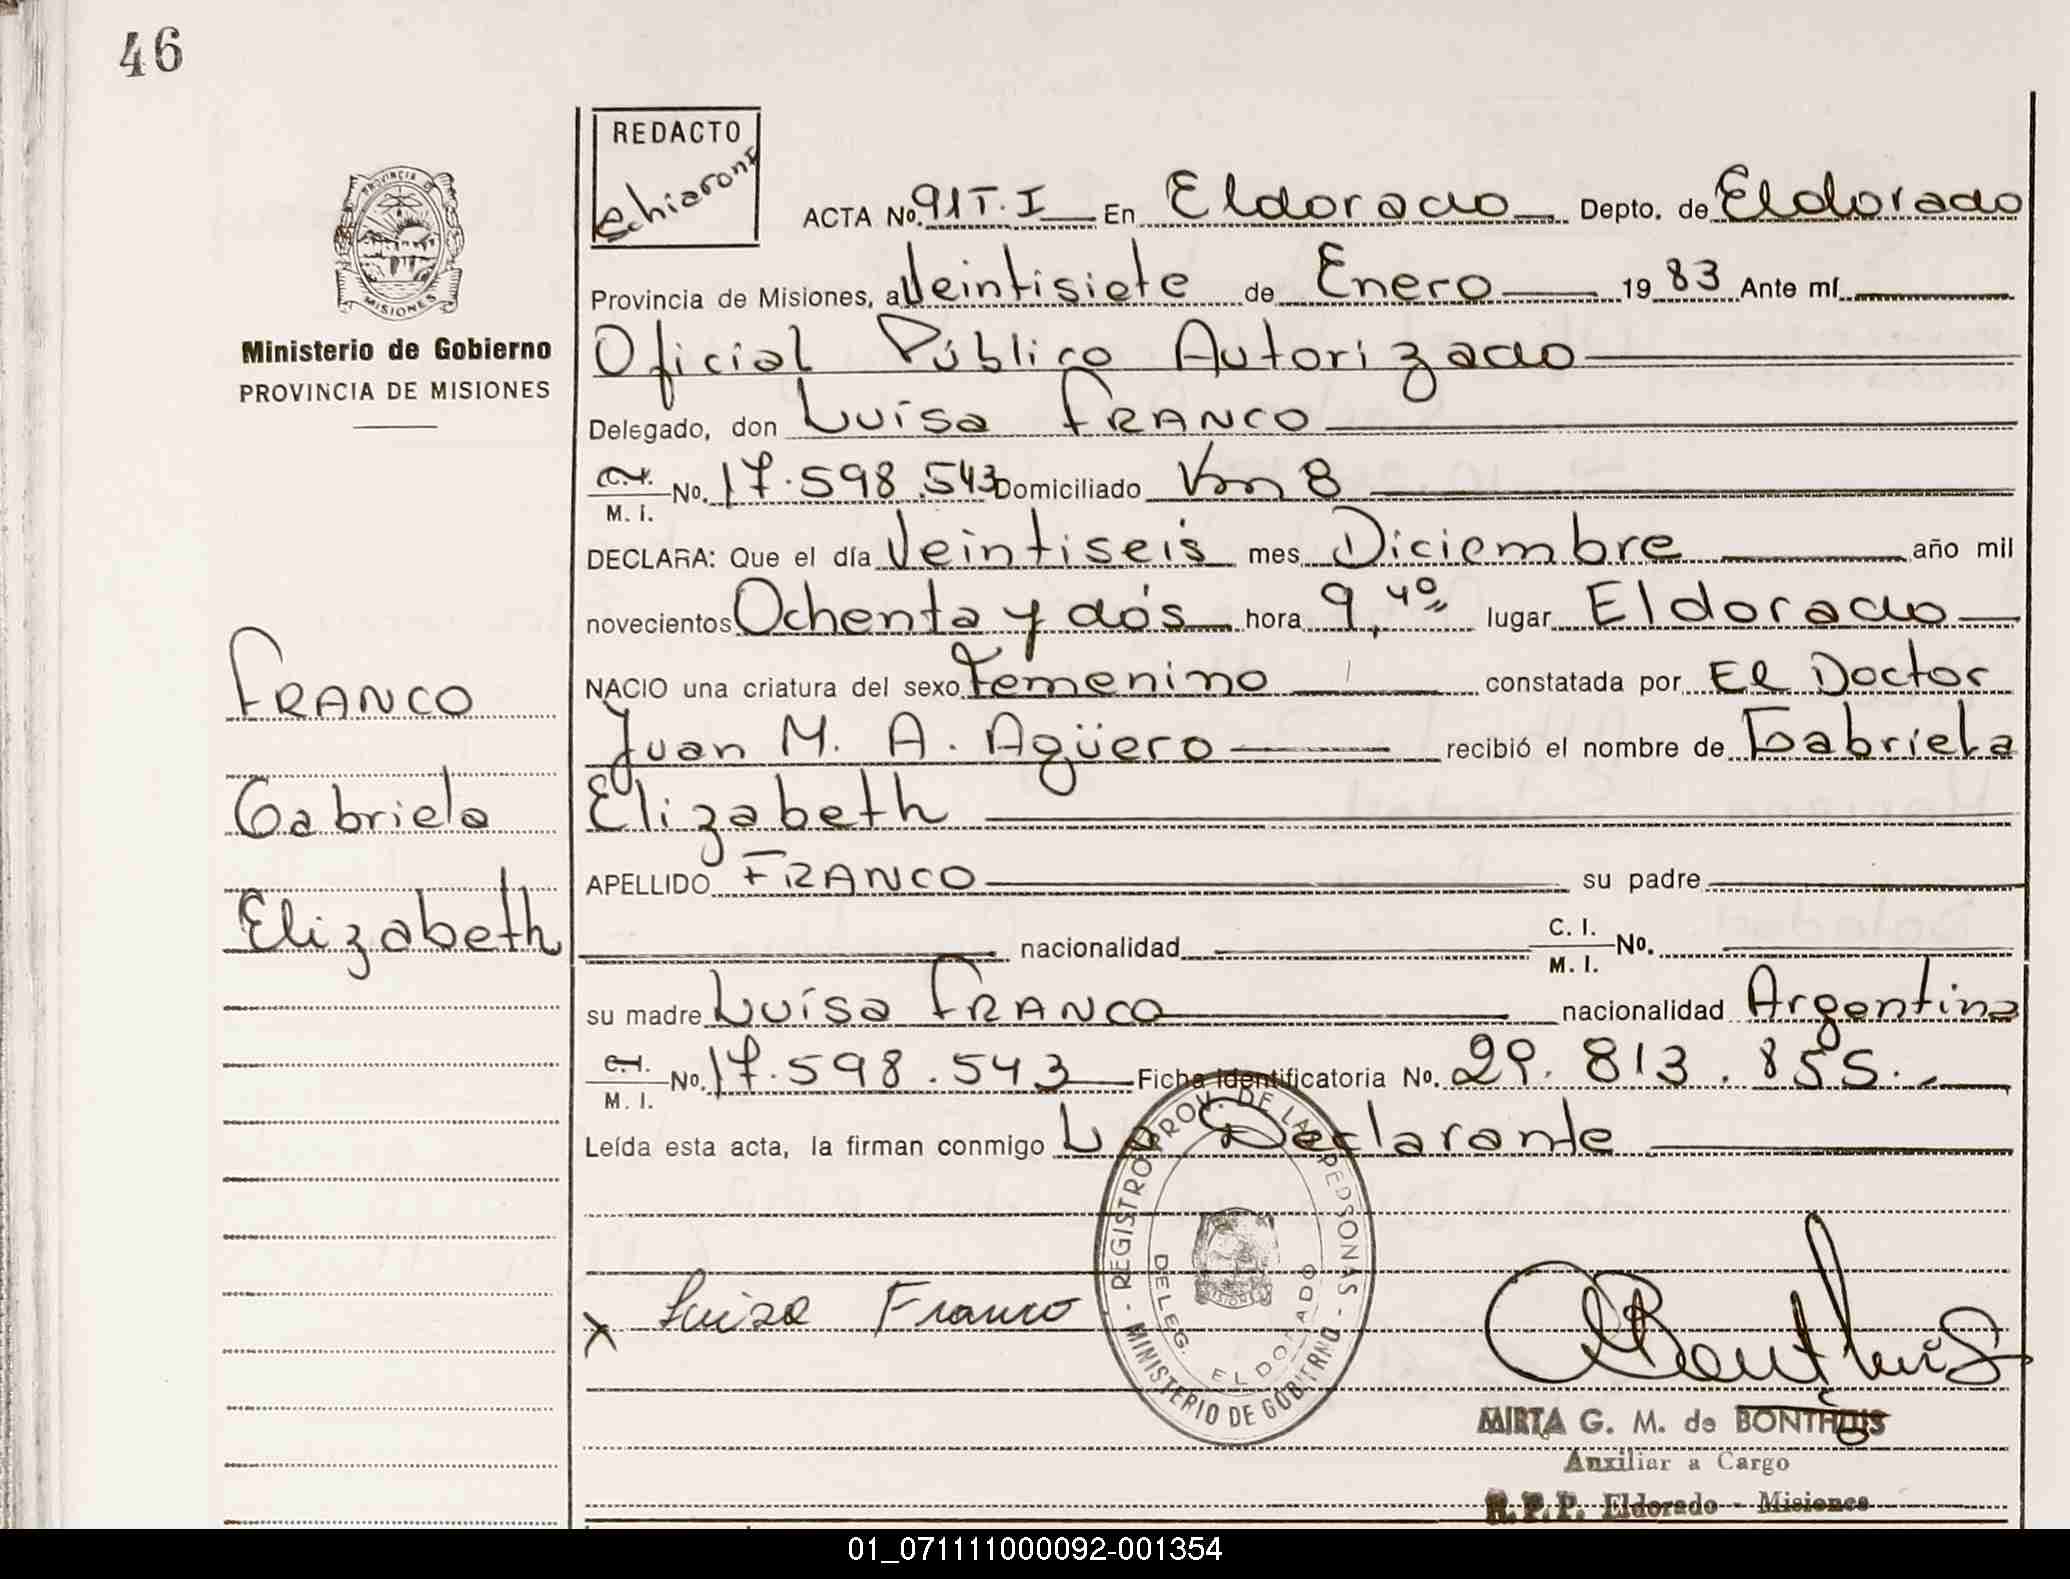 46
REDACTO
Echiarone
PROVINCIA DE
MISIONES
Ministerio de Gobierno
PROVINCIA DE MISIONES
ACTA No. 91 T. I En Eldorado Depto. de Eldorado
Provincia de Misiones, a Veintisiete de Enero 19 83 Ante mí
Oficial Público Autorizado
Delegado, don Luísa FRANCO
C.I. M. I. No. 17.598.543 Domiciliado Km 8
DECLARA: Que el día Veintiseis mes Diciembre año mil
novecientos Ochenta y dós hora 9,40 lugar Eldorado
NACIO una criatura del sexo Femenino constatada por El Doctor
Juan M. A. Agüero recibió el nombre de Gabriela
Elizabeth
APELLIDO FRANCO su padre
nacionalidad C. I. M. I. No.
su madre Luísa FRANCO nacionalidad Argentina
C.I. M. I. No. 17.598.543 Ficha identificatoria No. 29.813.855.
Leída esta acta, la firman conmigo La Declarante
FRANCO
Gabriela
Elizabeth
X Luisa Franco
REGISTRO PROV. DE LAS PERSONAS - MINISTERIO DE GOBIERNO -
DELEG. ELDORADO
MISIONES
MIRTA G. M. de BONTHUIS
Auxiliar a Cargo
R.P.P. Eldorado - Misiones
01_071111000092-001354